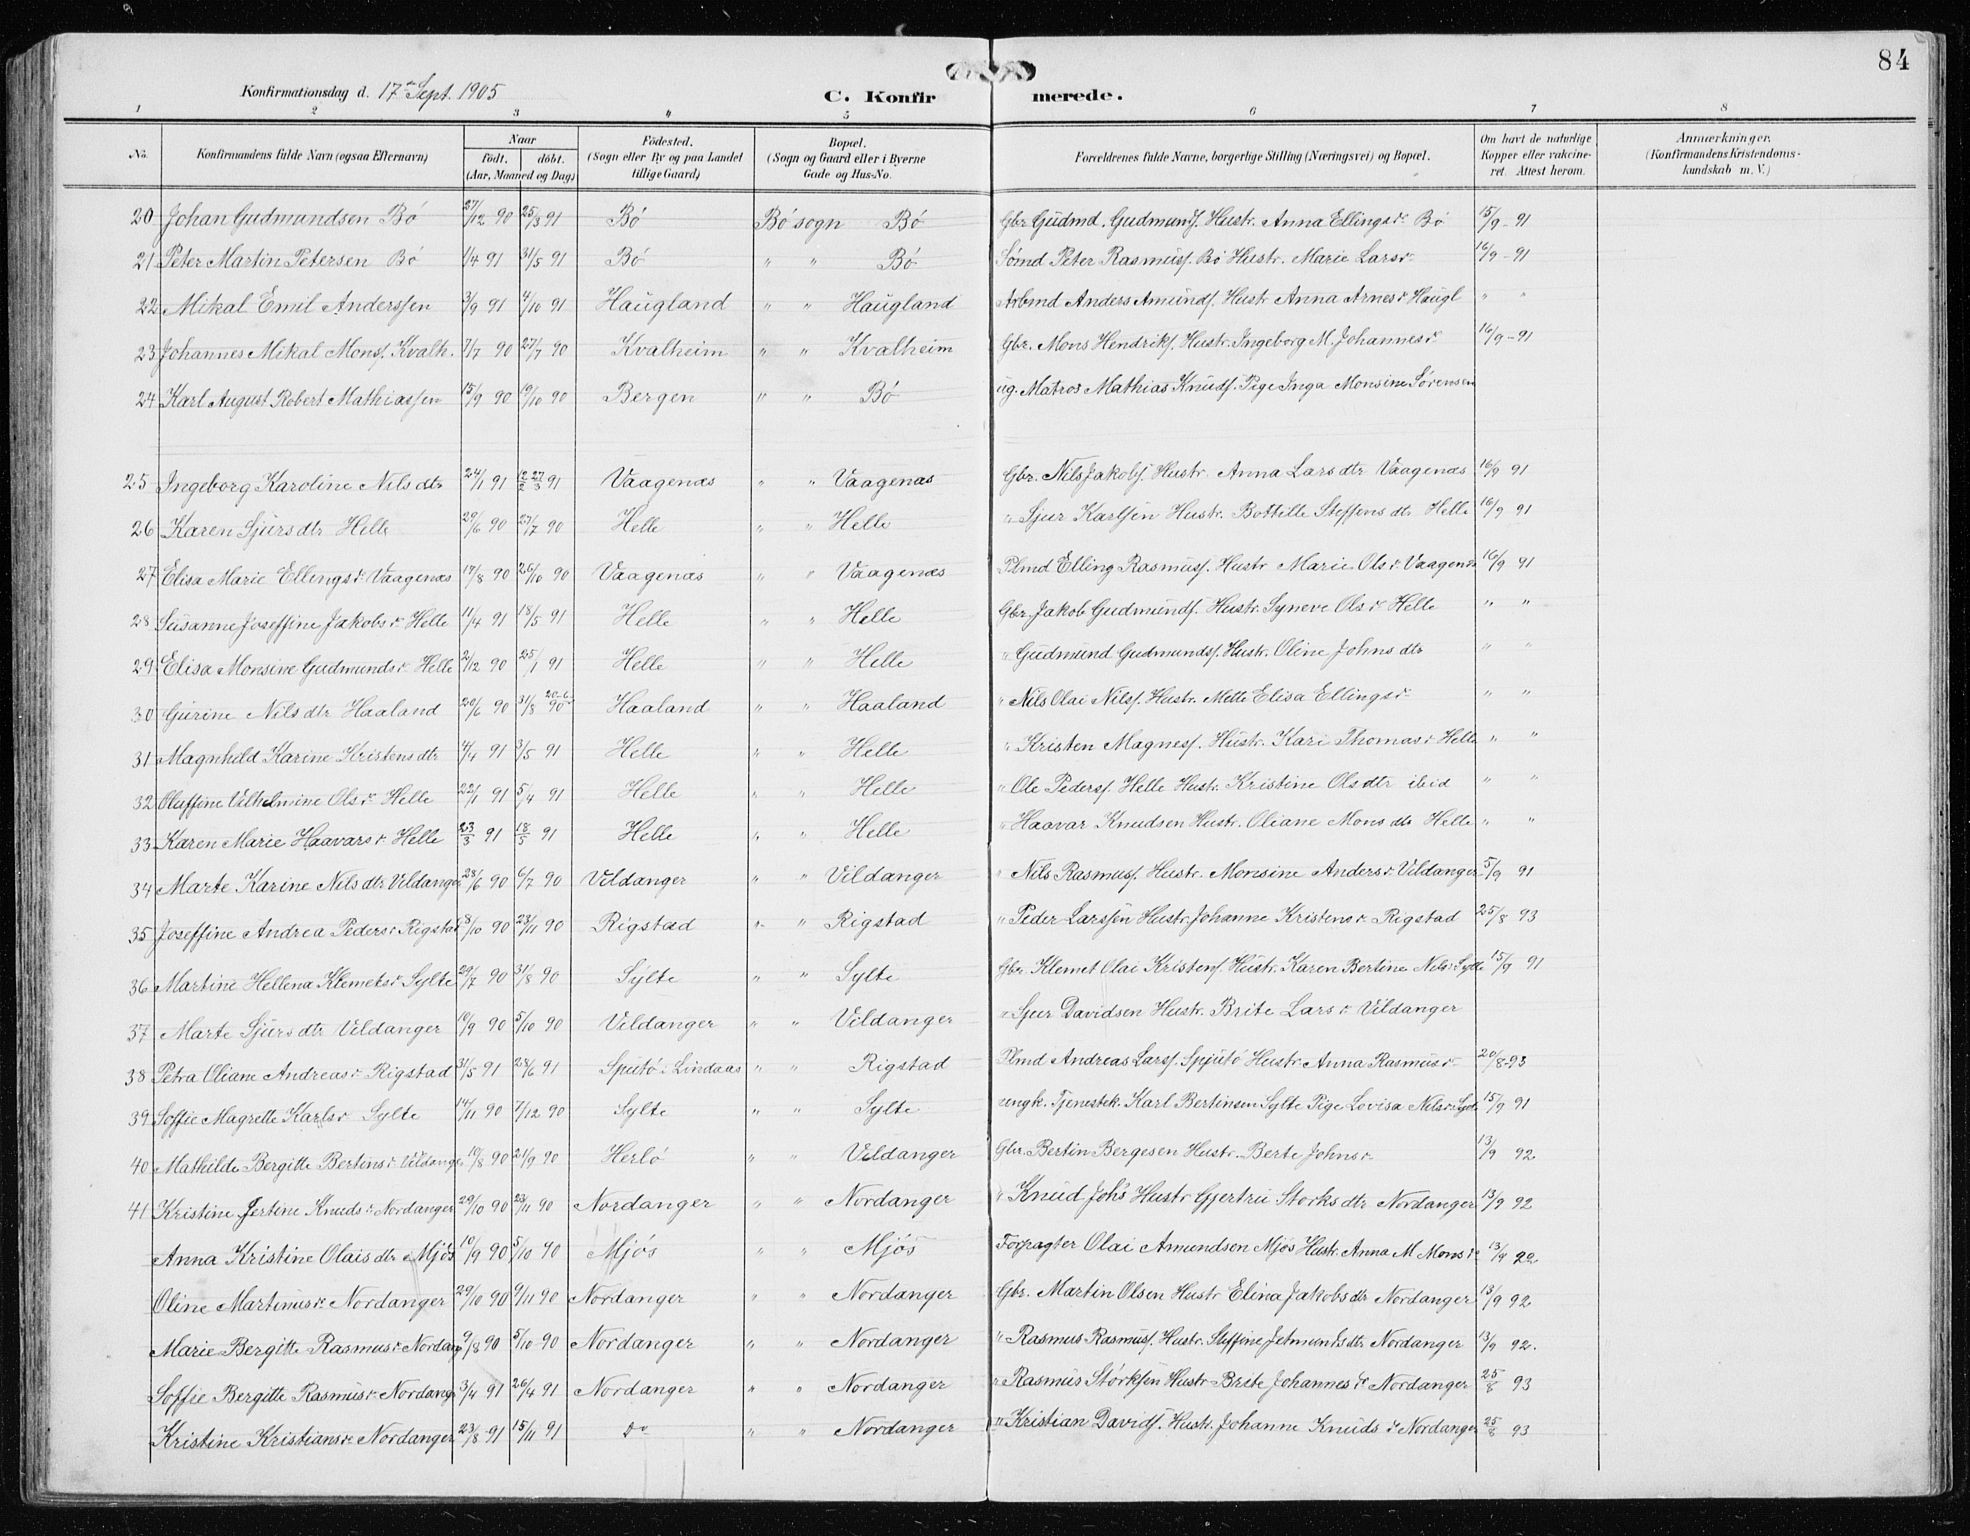 84
Konfirmationsdag d. 17de Sept. 1905 C. Konfirmerede.
1 2 3 4 5 6 7 8
No. Konfirmandens fulde Navn (ogsaa Efternavn) Naar født. døbt. (Aar, Maaned og Dag) Fødested. (Sogn eller By og paa Landet tillige Gaard) Bopæl. (Sogn og Gaard eller i Byerne Gade og Hus-No. Forældrenes fulde Navne, borgerlige Stilling (Næringsvei) og Bopæl. Om havt de naturlige Kopper eller vakcineret. Attest herom. Anmærkninger. (Konfirmandens Kristendomskundskab m. V.)
20 Johan Gudmundsen Bö 27/12 90 25/3 91 Bö Bö sogn Bö Gbr Gudmd. Gudmunds. Hustr. Anna Ellingsdr Bö 15/9 - 91
21 Peter Martin Petersen Bö 1/4 91 31/5 91 Bö " " Bö Sømd Peter Rasmuss. Bö Hustr. Marie Larsdr 16/9 - 91
22 Mikal Emil Anderssen 3/9 91 4/10 91 Haugland " " Haugland Arbmd Anders Amunds. Hustr Anna Arnesdr Haugl " "
23 Johannes Mikal Mons. Kvalh. 7/7 90 27/7 90 Kvalheim " " Kvalheim Gbr. Mons Hendriks. Hustr. Ingeborg M. Johannesdr 16/9 - 91
24 Karl August Robert Mathiassen 15/9 90 19/10 90 Bergen " " Bö ug. Matros Mathias Knuds. Pige Inga Monsine Sörensen
25 Ingeborg Karoline Nilsdtr 24/1 91 12/2 27/3 91 Vaagenæs " " Vaagenæs Gbr. Nils Jakobs. Hustr. Anna Larsdtr Vaagenæs 16/9 91
26 Karen Sjursdtr Helle 29/6 90 27/7 90 Helle " " Helle " Sjur Karlsen Hustr. Bottille Steffensdtr Helle 16/9 91
27 Elisa Marie Ellingsdr Vaagenæs 17/8 90 26/10 90 Vaagenæs " " Vaagenæs Plmd Elling Rasmuss. Hustr Marie Olsdr Vaagenæs 16/9 91
28 Susanne Joseffine Jakobsdr Helle 11/4 91 18/5 91 Helle " " Helle Gbr. Jakob Gudmunds. Hustr. Syneve Olsdr Helle " "
29 Elisa Monsine Gudmundsdr Helle 2/12 90 25/1 91 Helle " " Helle " Gudmund Gudmunds. Hustr. Oline Johnsdtr " "
30 Gurine Nilsdtr Haaland 20/6 90 31/8 90 20-6- Haaland " " Haaland " Nils Olai Nils. Hustr. Mette Elisa Ellingsdr " "
31 Magnhild Karine Kristensdtr 4/4 91 3/5 91 Helle " " Helle " Kristen Magness. Hustr. Kari Thomasdr Helle " "
32 Oluffine Vilhelmine Olsdr Helle 22/1 91 5/4 91 Helle " " Helle " Ole Peders. Helle Hustr. Kristine Olsdtr ibid " "
33 Karen Marie Haavarsdr Helle 23/3 91 18/5 91 Helle " " Helle " Haavar Knudsen Hustr. Oliane Monsdtr Helle " "
34 Marte Karine Nilsdtr Vildanger 28/6 90 6/7 90 Vildanger " " Vildanger " Nils Rasmuss. Hustr. Monsine Andersdr Vildanger 5/9 91
35 Joseffine Andrea Pedersdr Rigstad 8/10 90 23/11 90 Rigstad " " Rigstad " Peder Larssen Hustr. Johanne Kristensdr Rigstad 25/8 93
36 Martine Hellena Klemetsdr Sylte 29/7 90 31/8 90 Sylte " " Sylte Gbr. Klemet Olai Kristens. Hustr. Karen Bertine Nilsdr Sylte 15/9 91
37 Marte Sjursdtr Vildanger 10/9 90 5/10 90 Vildanger " " Vildanger " Sjur Davidsen Hustr. Brite Larsdr Vildanger
38 Petra Oliane Andreasdr Rigstad 31/5 91 28/6 91 Sputö i Lindaas " " Rigstad Plmd Andreas Lars. Spjutö Hustr. Anna Rasmusdr 20/8-93
39 Soffie Magrette Karlsdr Sylte 14/11 90 7/12 90 Sylte " " Sylte ungk. Tjenestek. Karl Bertinsen Sylte Pige Lovisa Nilsdr Sylte 15/9 91
40 Mathilde Bergitte Bertinsdr Vildanger 10/8 90 21/9 90 Herlö " " Vildanger Gbr. Bertin Bergesen Hustr. Berte Johnsdr 13/9 92
41 Kristine Jertine Knudsdr Nordanger 29/10 90 23/11 90 Nordanger " " Nordanger " Knud Johs Hustr Gjertrü Storksdtr Nordanger 13/9 92
Anna Kristine Olaisdtr Mjös 10/9 90 5/10 90 Mjös " " Mjös Forpagter Olai Amundsen Mjös Hustr. Anna M Monsdr 13/9 92
Oline Martinusdr Nordanger 29/10 90 9/11 90 Nordanger " " Nordanger Gbr. Martin Olsen Hustr Elina Jakobsdtr Nordanger 13/9 92
Marie Bergitte Rasmusdr Nordang 9/8 90 5/10 - 90 Nordanger " " Nordanger " Rasmus Rasmuss. Hustr. Steffine Jetmundsdtr Nordanger 13/9 92.
Soffie Bergitte Rasmusdr Nordang 3/4 91 26/4 91 Nordanger " " Nordanger " Rasmus Størksen Hustr Brite Johannesdr Nordanger 25/8 93
Kristine Kristiansdr Nordanger 23/8 - 91 15/11 91 Do " " Nordanger " Kristian Davids. Hustr. Johanne Knudsdr Nordanger 25/8 93